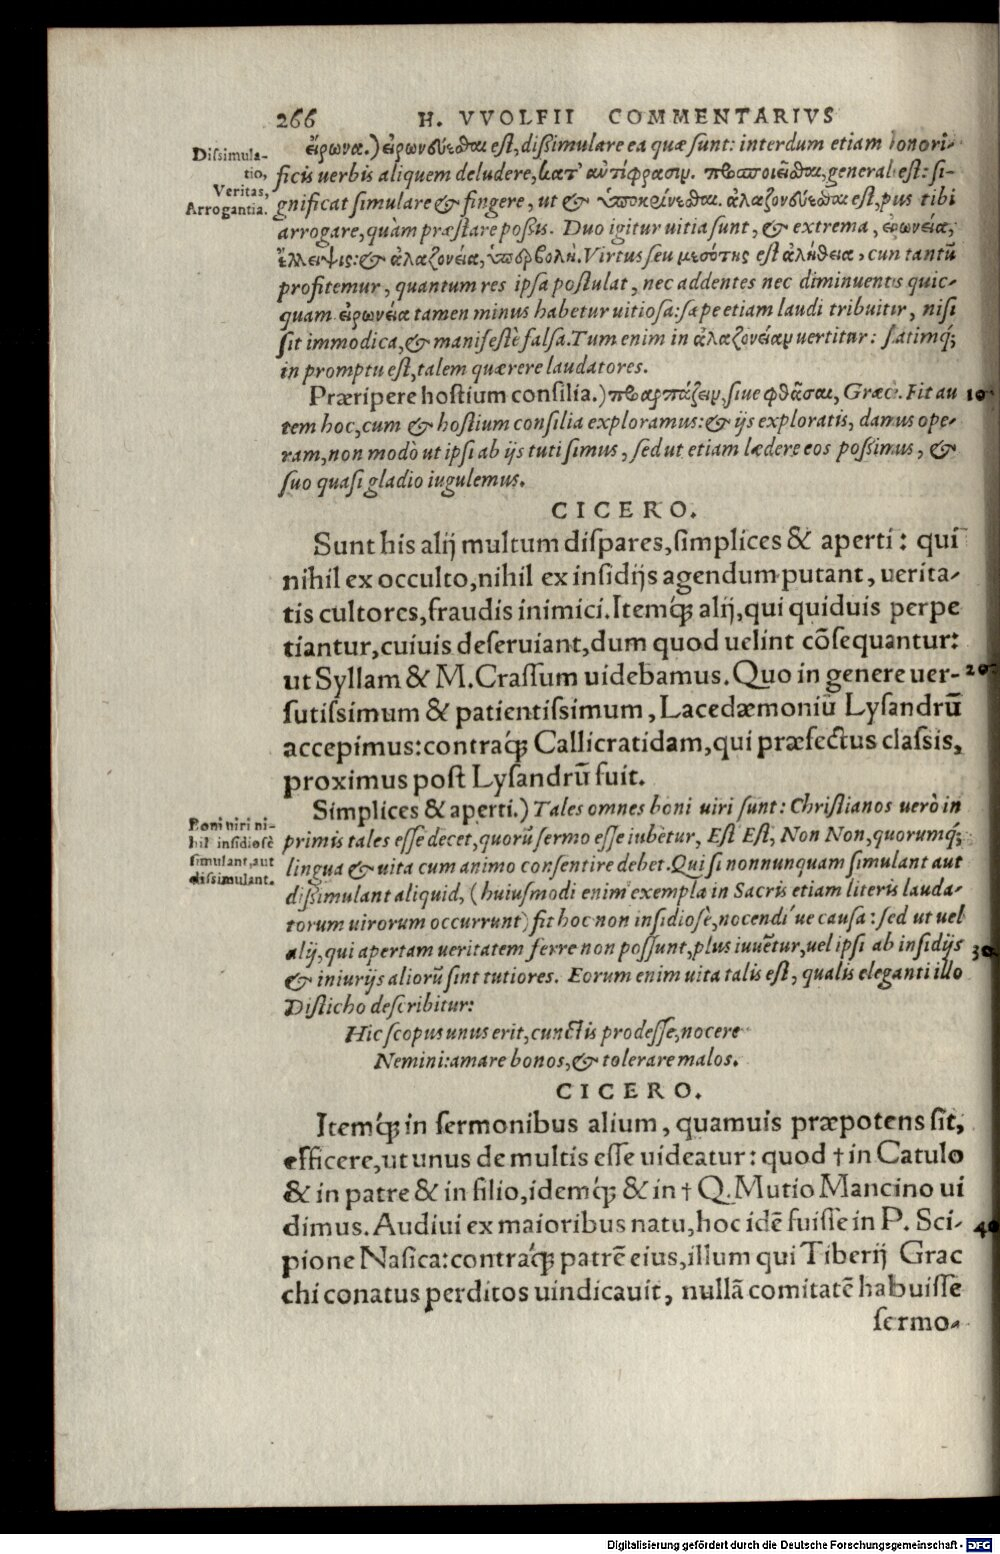 266 H. VVOLFII COMMENTARIVS
εἴρωνα.) εἰρωνεύεσθαι est, dißimulare ea quæ sunt: interdum etiam honori-
Dissimula-
tio,
Veritas,
Arrogantia.
ficis uerbis aliquem deludere, κατ' ἀντίφρασιν. προσποιεῖσθαι, general est: si-
gnificat simulare & fingere, ut & ὑποκρίνεσθαι. ἀλαζονεύεσθαι est, plus tibi
arrogare, quàm præstare poßis. Duo igitur uitia sunt, & extrema, εἰρωνεία,
ἔλλειψις: & ἀλαζονεία, ὑπερβολή. Virtus seu μεσότης est ἀλήθεια, cum tantũ
profitemur, quantum res ipsa postulat, nec addentes nec diminuentes quic-
quam. εἰρωνεία tamen minus habetur uitiosa: sæpe etiam laudi tribuitur, nisi
sit immodica, & manifestè falsa. Tum enim in ἀλαζονείαν uertitur: statimq́;
in promptu est, talem quærere laudatores.
Præripere hostium consilia.) προαρπάζειν, siue φθᾶσαι, Græcè. Fit au 10
tem hoc, cum & hostium consilia exploramus: & ijs exploratis, damus ope-
ram, non modò ut ipsi ab ijs tuti simus, sed ut etiam lædere eos poßimus, &
suo quasi gladio iugulemus.
CICERO.
Sunt his alij multum dispares, simplices & aperti: qui
nihil ex occulto, nihil ex insidijs agendum putant, uerita-
tis cultores, fraudis inimici. Itemq́; alij, qui quiduis perpe
tiantur, cuiuis deseruiant, dum quod uelint cõsequantur:
ut Syllam & M. Crassum uidebamus. Quo in genere uer- 20
sutissimum & patientissimum, Lacedæmoniũ Lysandrũ
accepimus: contraq́; Callicratidam, qui præfectus classis,
proximus post Lysandrũ fuit.
Simplices & aperti.) Tales omnes boni uiri sunt: Christianos uerò in
Boni uiri ni-
hil insidiosè
simulant, aut
dissimulant.
primis tales esse decet, quorũ sermo esse iubetur, Est Est, Non Non, quorumq́;
lingua & uita cum animo consentire debet. Qui si nonnunquam simulant aut
dißimulant aliquid, (huiusmodi enim exempla in Sacris etiam literis lauda-
torum uirorum occurrunt) fit hoc non insidiosè, nocendi ́ue causa: sed ut uel
alij, qui apertam ueritatem ferre non possunt, plus iuuẽtur, uel ipsi ab insidijs 30
& iniurijs aliorũ sint tutiores. Eorum enim uita talis est, qualis eleganti illo
Disticho describitur:
Hic scopus unus erit, cunctis prodesse, nocere
Nemini: amare bonos, & tolerare malos.
CICERO.
Itemq́; in sermonibus alium, quamuis præpotens sit,
efficere, ut unus de multis esse uideatur: quod † in Catulo
& in patre & in filio, idemq́; & in † Q. Mutio Mancino ui
dimus. Audiui ex maioribus natu, hoc idẽ fuisse in P. Sci- 40
pione Nasica: contraq́; patrẽ eius, illum qui Tiberij Grac
chi conatus perditos uindicauit, nullã comitatẽ habuisse
sermo-
Digitalisierung gefördert durch die Deutsche Forschungsgemeinschaft - DFG